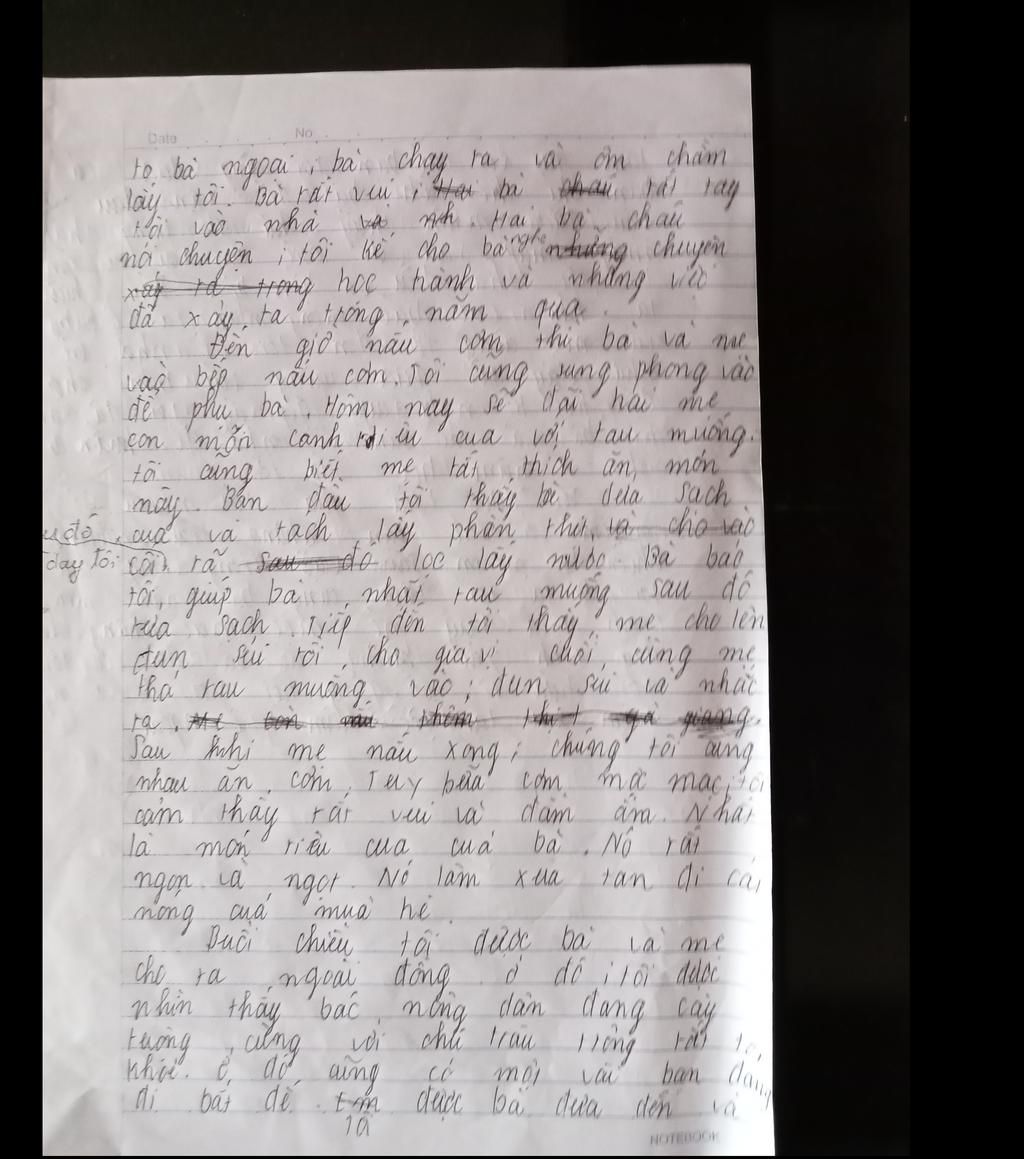 Date No
to bà ngoại, bà chạy ra và ôm chầm
lấy tôi. Bà rất vui, Hai bà cháu rắt tay
tôi vào nhà và nh. Hai bà cháu
nói chuyện, tôi kể cho bà nghe những chuyện
xảy ra trong học hành và những việc
đã xảy ra trong năm qua.
Đến giờ nấu cơm thì bà và mẹ
vào bếp nấu cơm. Tôi cũng sung phong vào
để phụ bà. Hôm nay sẽ đãi hai mẹ
con món canh riêu cua với rau muống.
tôi cũng biết mẹ rất thích ăn món
này. Ban đầu tôi thấy bà dửa sạch
cua và tách lấy phần thịt, và cho vào
đó
day tôi
cối rã sau đó lọc lấy nước. Bà bảo
tôi giúp bà nhặt rau muống sau đó
rửa sạch. Tiếp đến tôi thấy mẹ cho lên
đun súi rồi cho gia vị cuối cùng mẹ
thả rau muống vào, đun súi và nhấc
ra. thêm thịt gà giang.
Sau khi mẹ nấu xong, chúng tôi cùng
nhau ăn cơm. Tuy bữa cơm mộc mạc, tôi
cảm thấy rất vui và đầm ấm. Nhất
là món riêu cua của bà. Nó rất
ngon và ngọt. Nó làm xua tan đi cái
nóng của mùa hè.
Buổi chiều tôi được bà và mẹ
cho ra ngoài đồng. ở đó, tôi được
nhìn thấy bác nông dân đang cày
ruộng cùng với chú trâu trông rất to,
khỏe. ở đó cũng có một vài bạn đang
đi bắt dế. tm được bà đưa đến và
NOTEBOOK